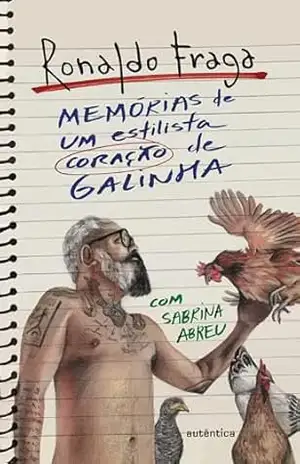 Ronaldo Fraga
MEMÓRIAS de
UM estilista
CORAÇÃO de
GALINHA
COM
SABRINA
ABREU
autêntica